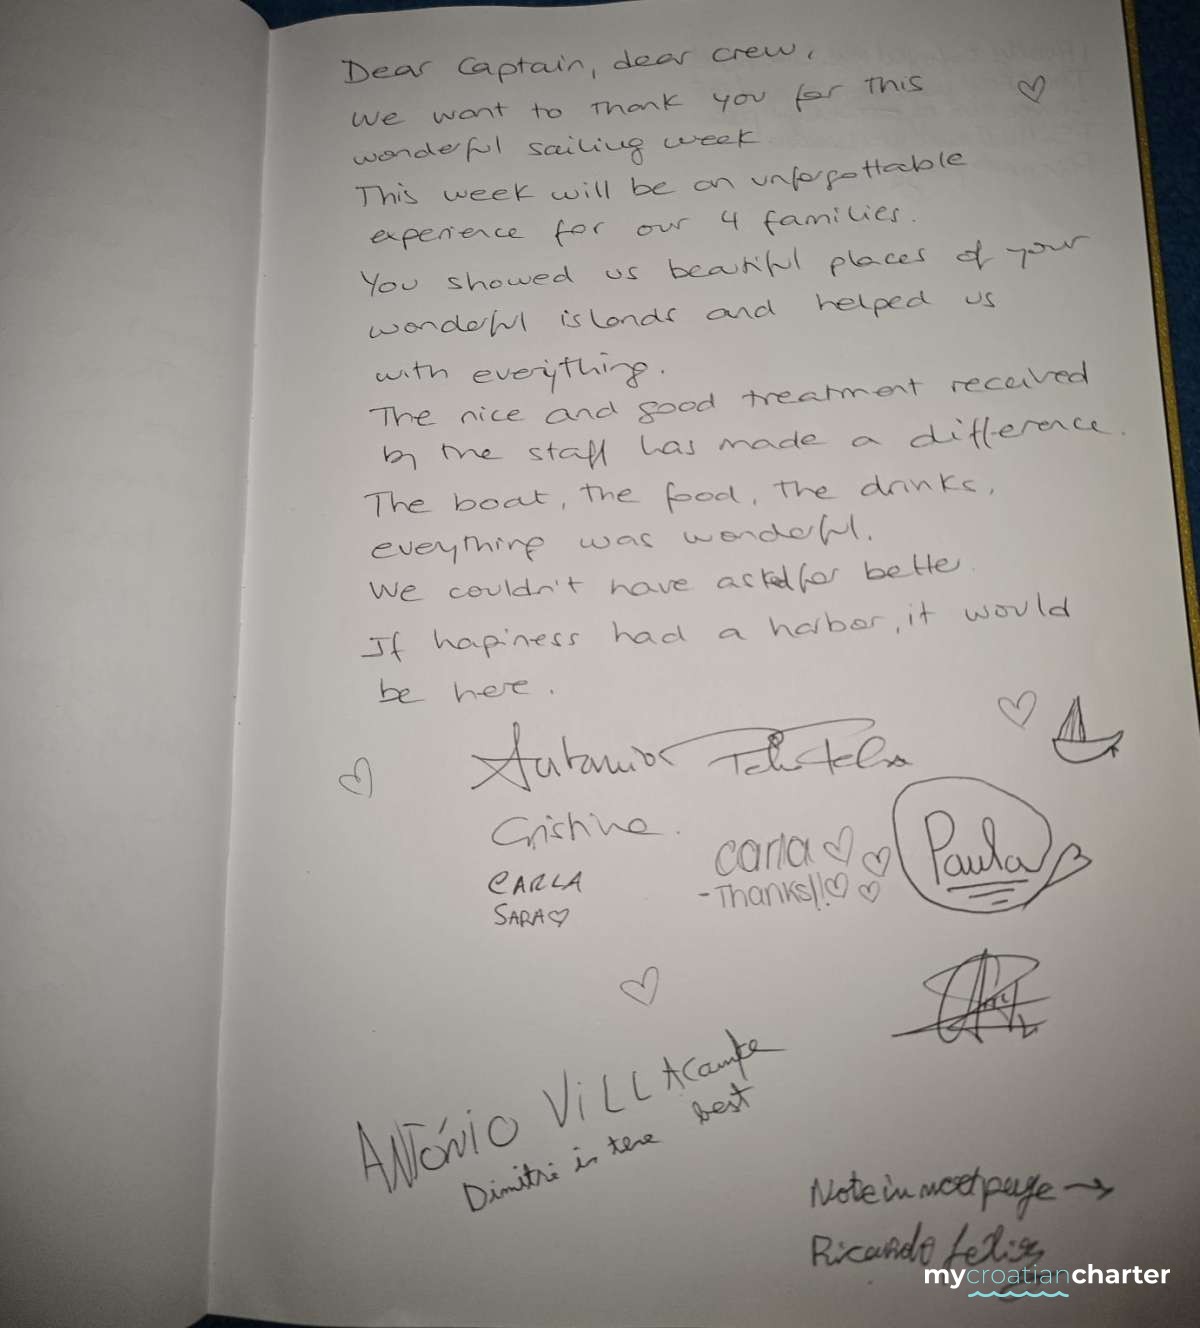 Dear Captain, dear crew,
We want to thank you for this
wonderful sailing week
This week will be an unforgottable
experience for our 4 families.
You showed us beautiful places of your
wonderful islands and helped us
with everything.
The nice and good treatment received
by the staff has made a difference.
The boat, the food, the drinks,
everything was wonderful.
We couldn't have asked for better.
If hapiness had a harbor, it would
be here.
Cristina.
CARLA
SARA
carla
-Thanks!!
Paula
ANTÓNIO
Dimitri is
best
Note in next page →
Ricardo
mycroatiancharter